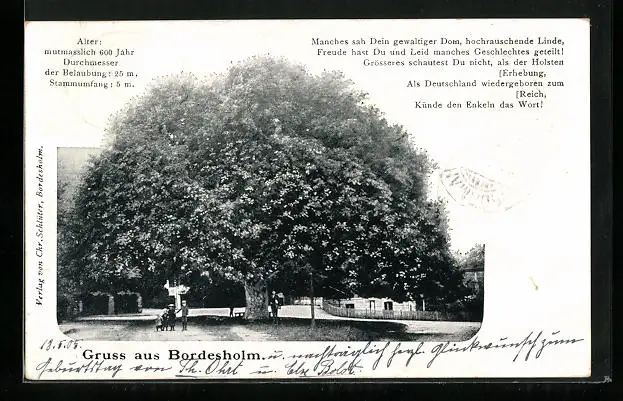 Alter:
mutmasslich 600 Jahr
Durchmesser
der Belaubung: 25 m,
Stammumfang: 5 m.
Manches sah Dein gewaltiger Dom, hochrauschende Linde,
Freude hast Du und Leid manches Geschlechtes geteilt!
Grösseres schautest Du nicht, als der Holsten
[Erhebung,
Als Deutschland wiedergeboren zum
[Reich,
Künde den Enkeln das Wort!
Verlag von Chr. Schlüter, Bordesholm.
Gruss aus Bordesholm. u. nachträglich herzl. Glückwunsch zum
Geburtstag von Th. Ohrt u.